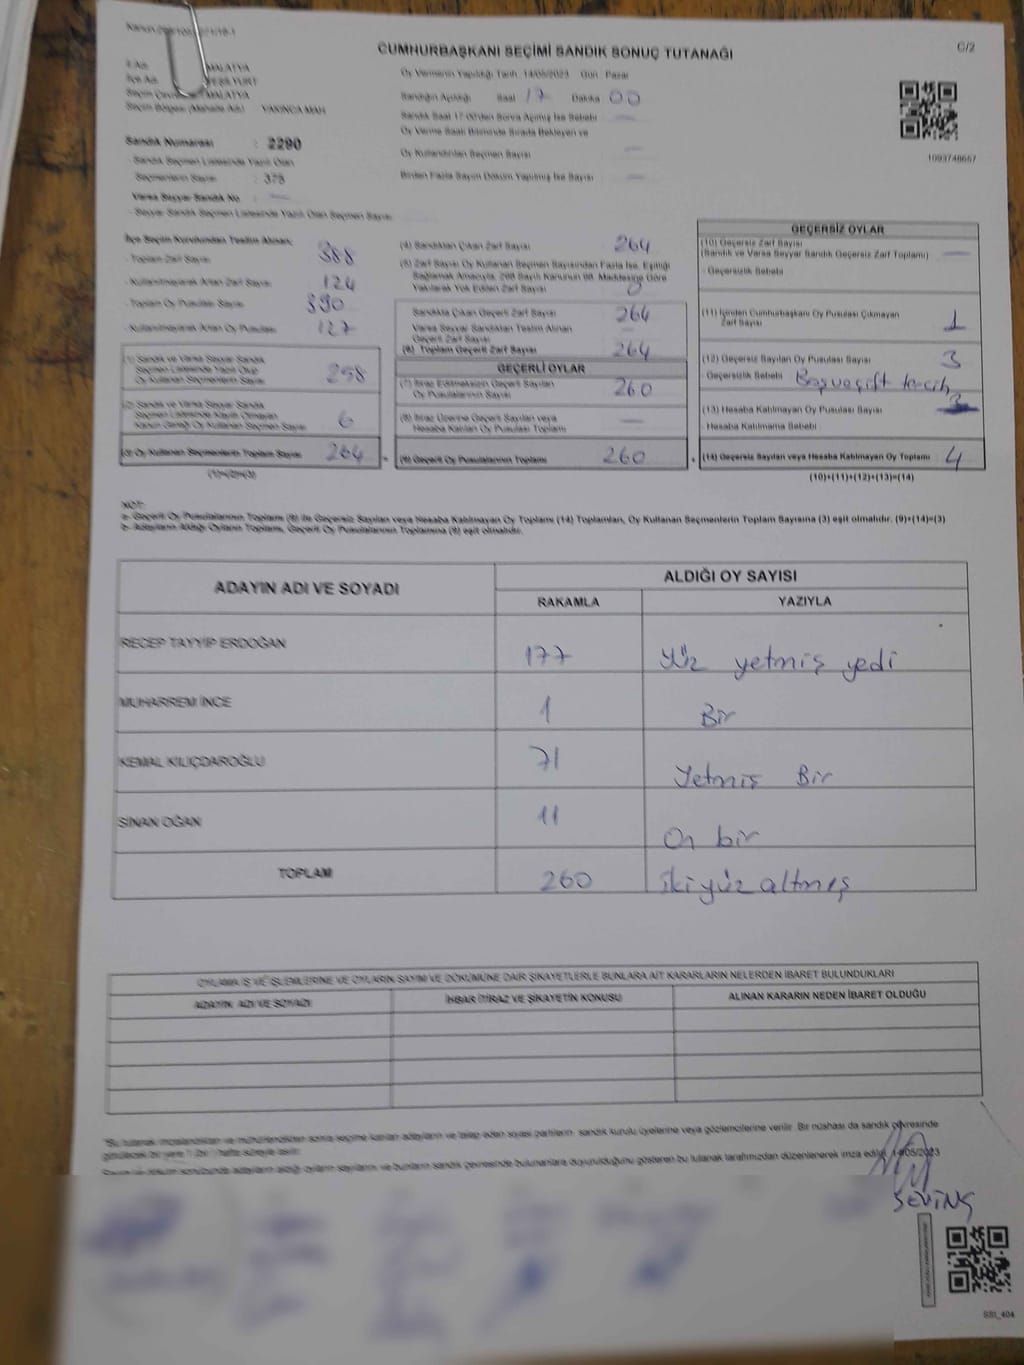 CUMHURBAŞKANI SEÇİMİ SANDIK SONUÇ TUTANAĞI
C/2
İl Adı : MALATYA
İlçe Adı : YEŞİLYURT
Seçim Çevresi : MALATYA
Seçim Bölgesi (Mahalle Adı) YAKINCA MAH.
Oy Vermenin Yapıldığı Tarih :14/05/2023 Gün : Pazar
Sandığın Açıldığı Saat 17 Dakika 00
Sandık Saat 17:00'den Sonra Açılmış İse Sebebi
Oy Verme Saati Bitiminde Sırada Bekleyen ve
Oy Kullandırılan Seçmen Sayısı
Birden Fazla Sayım Döküm Yapılmış İse Sayısı
1093748657
Sandık Numarası : 2290
- Sandık Seçmen Listesinde Yazılı Olan
Seçmenlerin Sayısı : 375
Varsa Seyyar Sandık No :
- Seyyar Sandık Seçmen Listesinde Yazılı Olan Seçmen Sayısı
İlçe Seçim Kurulundan Teslim Alınan;
- Toplam Zarf Sayısı 388
- Kullanılmayarak Artan Zarf Sayısı 124
- Toplam Oy Pusulası Sayısı 390
- Kullanılmayarak Artan Oy Pusulası 127
(1) Sandık ve Varsa Seyyar Sandık
Seçmen Listesinde Yazılı Olup
Oy Kullanan Seçmenlerin Sayısı 258
(2) Sandık ve Varsa Seyyar Sandık
Seçmen Listesinde Kayıtlı Olmayan
Kanun Gereği Oy Kullanan Seçmenlerin Sayısı 6
(3) Oy Kullanan Seçmenlerin Toplam Sayısı 264
(1)+(2)=(3)
(4) Sandıktan Çıkan Zarf Sayısı 264
(5) Zarf Sayısı Oy Kullanan Seçmen Sayısından Fazla İse, Eşitliği
Sağlamak Amacıyla, 298 Sayılı Kanunun 98. Maddesine Göre
Yakılarak Yok Edilen Zarf Sayısı 0
Sandıkta Çıkan Geçerli Zarf Sayısı 264
Varsa Seyyar Sandıktan Teslim Alınan
Geçerli Zarf Sayısı
(6) Toplam Geçerli Zarf Sayısı 264
GEÇERLİ OYLAR
(7) İtiraz Edilmeksizin Geçerli Sayılan
Oy Pusulalarının Sayısı 260
(8) İtiraz Üzerine Geçerli Sayılan veya
Hesaba Katılan Oy Pusulası Toplamı
(9) Geçerli Oy Pusulalarının Toplamı 260
GEÇERSİZ OYLAR
(10) Geçersiz Zarf Sayısı
(Sandık ve Varsa Seyyar Sandık Geçersiz Zarf Toplamı)
- Geçersizlik Sebebi
(11) İçinden Cumhurbaşkanı Oy Pusulası Çıkmayan
Zarf Sayısı 1
(12) Geçersiz Sayılan Oy Pusulası Sayısı 3
- Geçersizlik Sebebi Boş ve çift tercih
(13) Hesaba Katılmayan Oy Pusulası Sayısı
- Hesaba Katılmama Sebebi
(14) Geçersiz Sayılan veya Hesaba Katılmayan Oy Toplamı 4
(10)+(11)+(12)+(13)=(14)
NOT:
a- Geçerli Oy Pusulalarının Toplamı (9) ile Geçersiz Sayılan veya Hesaba Katılmayan Oy Toplamı (14) Toplamları, Oy Kullanan Seçmenlerin Toplam Sayısına (3) eşit olmalıdır. (9)+(14)=(3)
b- Adayların Aldığı Oyların Toplamı, Geçerli Oy Pusulalarının Toplamına (9) eşit olmalıdır.
ADAYIN ADI VE SOYADI
ALDIĞI OY SAYISI
RAKAMLA
YAZIYLA
RECEP TAYYİP ERDOĞAN 177 Yüz yetmiş yedi
MUHARREM İNCE 1 Bir
KEMAL KILIÇDAROĞLU 71 Yetmiş Bir
SİNAN OĞAN 11 On bir
TOPLAM 260 iki yüz altmış
OYLAMA İŞ VE İŞLEMLERİNE VE OYLARIN SAYIM VE DÖKÜMÜNE DAİR ŞİKAYETLERLE BUNLARA AİT KARARLARIN NELERDEN İBARET BULUNDUKLARI
ADAYIN, ADI VE SOYADI
İHBAR İTİRAZ VE ŞİKAYETİN KONUSU
ALINAN KARARIN NEDEN İBARET OLDUĞU
*Bu tutanak imzalandıktan ve mühürlendikten sonra seçime katılan adayların ve talep eden siyasi partilerin, sandık kurulu üyelerine veya gözlemcilerine verilir. Bir nüshası da sandık çevresinde
görülecek bir yere 1 (bir ) hafta süreyle asılır.
Sayım ve döküm sonucunda adayların aldığı oyların sayılarını ve bunların sandık çevresinde bulunanlara duyurulduğunu gösteren bu tutanak tarafımızdan düzenlenerek imza edildi. 14/05/2023
SEVİNÇ
SSI_404